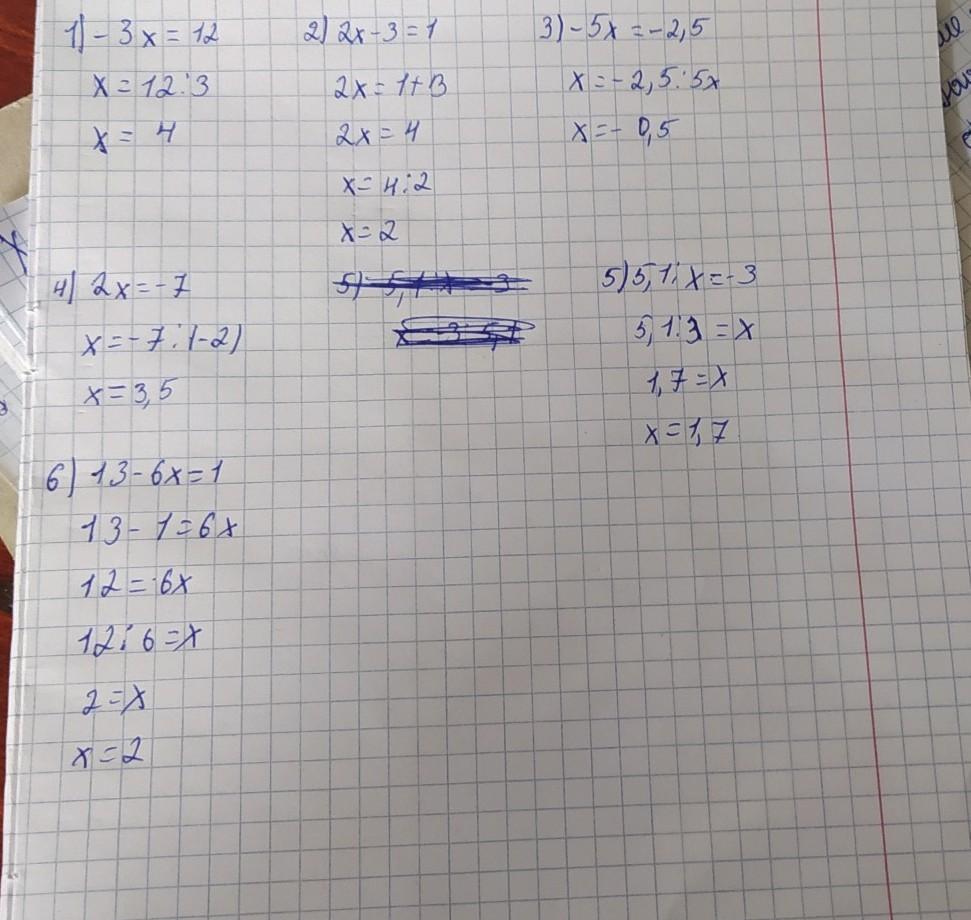 1) - 3x = 12
x = 12 : 3
x = 4
2) 2x - 3 = 1
2x = 1 + 3
2x = 4
x = 4 : 2
x = 2
3) - 5x = - 2,5
x = - 2,5 : 5x
x = - 0,5
4) 2x = - 7
x = - 7 : (-2)
x = 3,5
5) 5,1 : x = - 3
5,1 : 3 = x
1,7 = x
x = 1,7
6) 13 - 6x = 1
13 - 1 = 6x
12 = 6x
12 : 6 = x
2 = x
x = 2